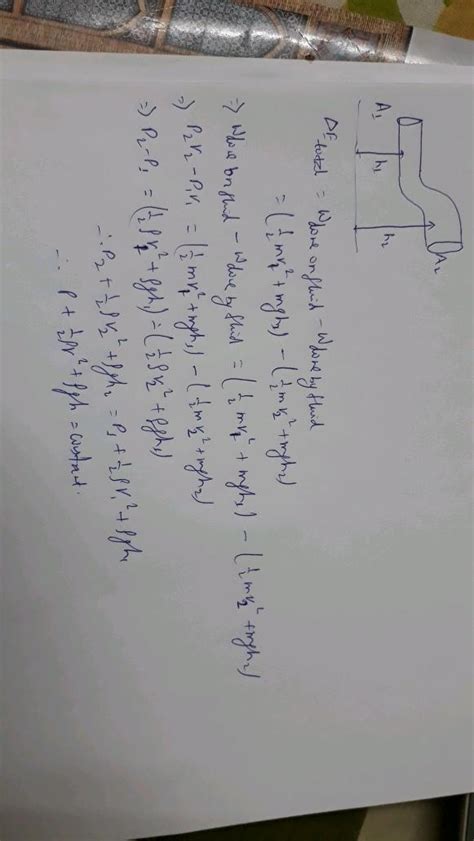 A₁ h₁ h₂ A₂
ΔE total = W done on fluid – W done by fluid
= (½mv₁² + mgh₁) – (½mv₂² + mgh₂)
⇒ W done on fluid – W done by fluid = (½mv₁² + mgh₁) – (½mv₂² + mgh₂)
⇒ P₂V₂ – P₁V₁ = (½mv₁² + mgh₁) – (½mv₂² + mgh₂)
⇒ P₂ – P₁ = (½ρv₂² + ρgh₂) – (½ρv₂² + ρgh₁)
∴ P₂ + ½ρv₂² + ρgh₂ = P₁ + ½ρv₁² + ρgh₁
∴ P + ½ρv² + ρgh = constant.